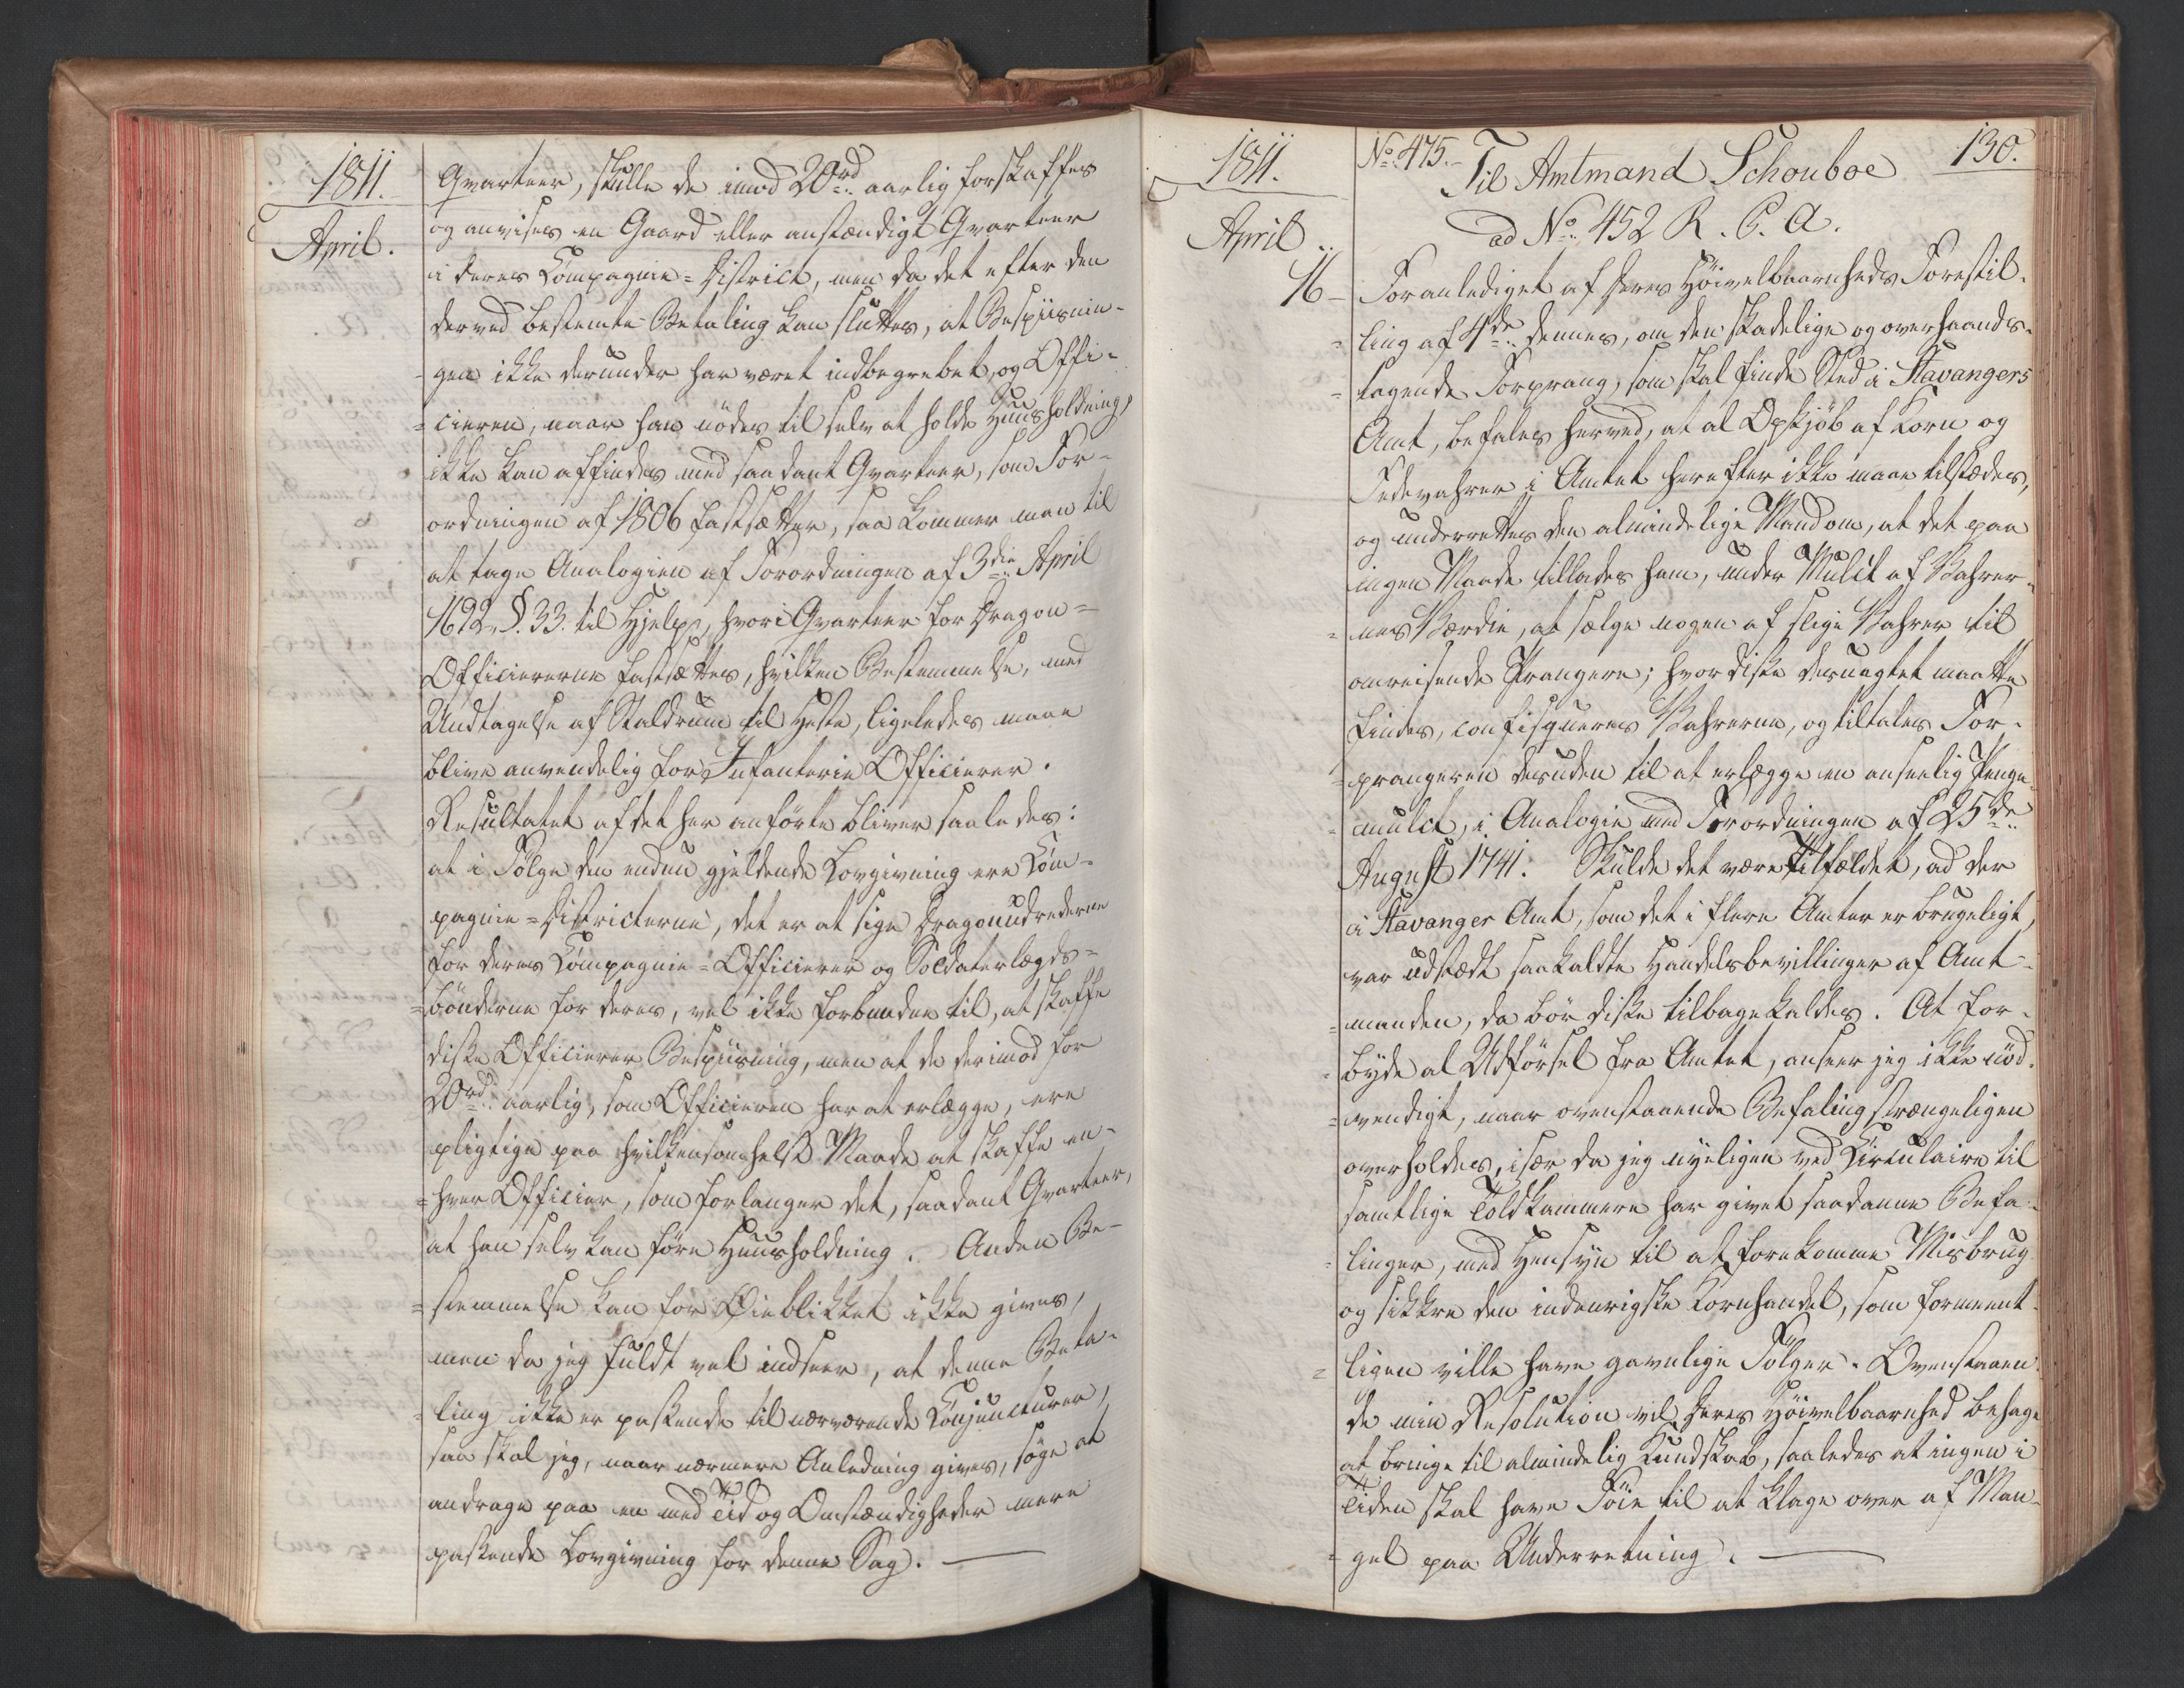 1811.
April.
Qvarteer, skulle de imod 20rd. aarlig forskaffes
og anvises en Gaard eller anstændigt Qvarteer
i deres Compagnie-District, men da det efter den
derved bestemte Betaling kan sluttes, at Bespiisnin-
gen ikke derunder har været indbegrebet, og Offi-
cieren, naar han nödes til selv at holde Huusholdning,
ikke kan affindes med saadant Qvarteer, som For-
ordningen af 1806 fastsætter, saa kommer man til
at tage Analogien af Forordningen af 3die April
1692, §. 33. til Hjelp, hvori Qvarteer for Dragon-
Officiererne fastsættes, hvilken Bestemmelse, med
Undtagelse af Staldrum til Heste, ligeledes maae
blive anvendelig for Infanterie Officierer.
Resultatet af det her anförte bliver saaledes:
at i Fölge den endnu gjeldende Lovgivning ere Com-
pagnie-Districterne, det er at sige Dragonudrederne
for deres Compagnie-Officierer og Soldaterlægds-
=bönderne for deres, vel ikke forbunden til, at skaffe
diske Officierer Bespiisning, men at de derimod for
20rd. aarlig, som Officieren har at erlægge, ere
pligtige paa hvilkensomhelst Maade at skaffe en-
=hver Officier, som forlanger det, saadant Qvarteer,
at han selv kan före Huusholdning. Anden Be-
=stemmelse kan for Øieblikket ikke gives,
men da jeg fuldt vel indseer, at denne Beta-
=ling ikke er paskende til nærværende Conjuncturer,
saa skal jeg, naar nærmere Anledning gives, söge at
andrage paa en med Tid og Omstændigheder mere
paskende Lovgivning for denne Sag.
1811.
April
16
No. 475. Til Amtmand Schouboe 130.
ad No. 452 R. C. A.
Foranlediget af Deres Höivelbaarnheds Forestil-
=ling af 4de dennes, om den skadelige og overhaands-
=tagende Forprang, som skal finde Sted i Stavangers
Amt, befales herved, at al Opkjöb af Korn og
Fedevahrer i Amtet herefter ikke maae tilstædes,
og underrettes den almindelige Mand om, at det paa
ingen Maade tillades ham, under Mulct af Vahrer-
=nes Værdie, at sælge nogen af slige Vahrer til
omreisende Prangere; hvor diske desuagtet maatte
findes, confisqueres Vahrerne, og tiltales For-
=prangeren desuden til at erlægge en anseelig Penge
=mulct, i Analogie med Forordningen af 25de
August 1741. Skulde det være Tilfældet, ad der
i Stavanger Amt, som det i flere Amter er brugeligt,
var udstædt saakaldte Handelsbevillinger af Amt-
=manden, da bör diske tilbagekaldes. At for-
=byde al Udförsel fra Amtet, anseer jeg ikke nöd-
=vendigt, naar ovenstaaende Befaling strængeligen
overholdes, især da jeg nyeligen ved Circulaire til
samtlige Toldkammere har givet saadanne Befa-
=linger, med Hensyn til at forekomme Misbrug
og sikkre den indenrigske Kornhandel, som forment-
=ligen ville have gavnlige Fölger. Ovenstaaen-
de min Resolution vil Deres Höivelbaarnhed behage
at bringe til almindelig Kundskab, saaledes at ingen i
Tiden skal have Föie til at klage over af Man-
=gel paa Underretning.